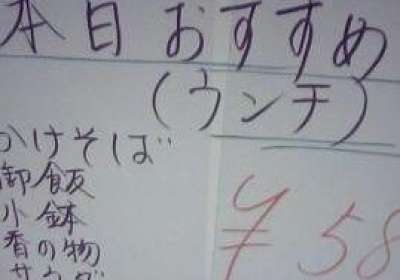 本日おすすめ
(ウンチ)
かけそば
御飯
小鉢
香の物
サラダ
¥58